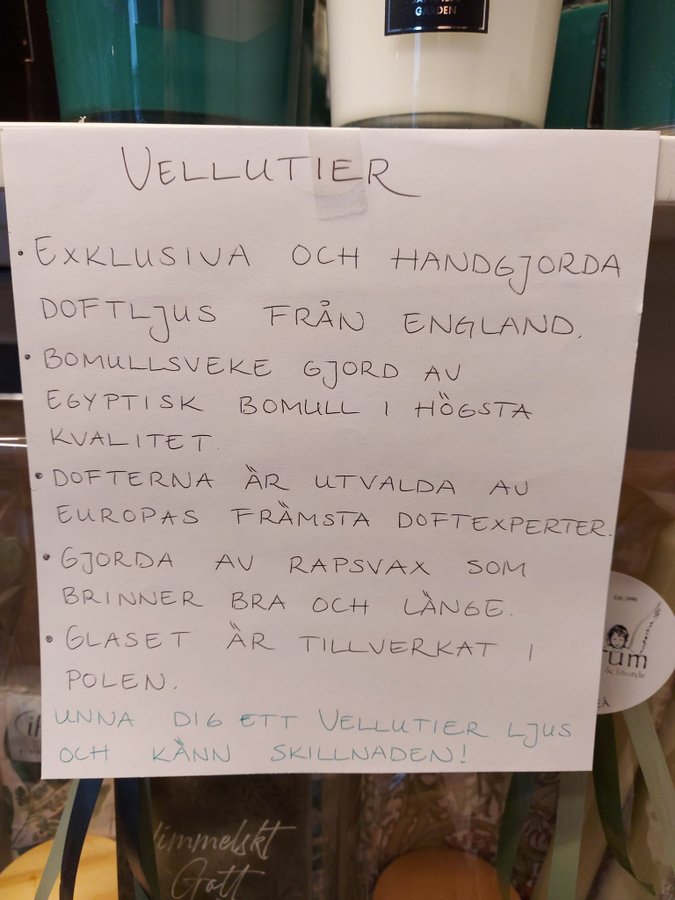 GARDEN
VELLUTIER
• EXKLUSIVA OCH HANDGJORDA
DOFTLJUS FRÅN ENGLAND.
• BOMULLSVEKE GJORD AV
EGYPTISK BOMULL I HÖGSTA
KVALITET.
• DOFTERNA ÄR UTVALDA AV
EUROPAS FRÄMSTA DOFTEXPERTER.
• GJORDA AV RAPSVAX SOM
BRINNER BRA OCH LÄNGE.
• GLASET ÄR TILLVERKAT I
POLEN.
UNNA DIG ETT VELLUTIER LJUS
OCH KÄNN SKILLNADEN!
rum
& lifestyle
immelskt
Gott